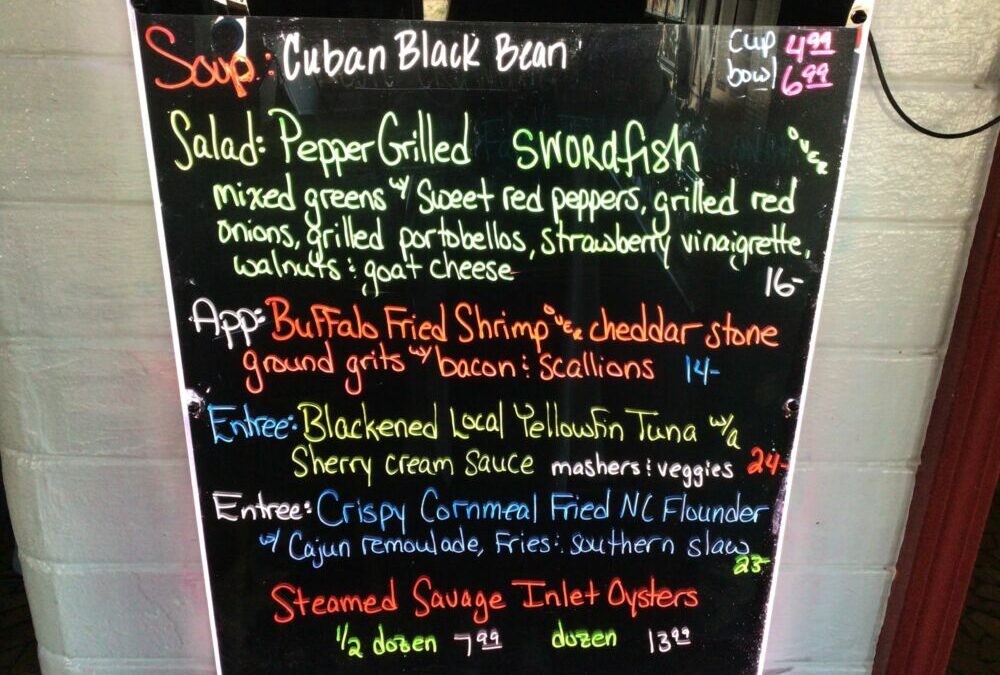 Soup: Cuban Black Bean cup 4.99
bowl 6.99
Salad: Pepper Grilled Swordfish over
mixed greens w/ Sweet red peppers, grilled red
onions, grilled portobellos, strawberry vinaigrette,
walnuts & goat cheese 16-
App: Buffalo Fried Shrimp over cheddar stone
ground grits w/ bacon & scallions 14-
Entree: Blackened Local Yellowfin Tuna w/a
Sherry cream sauce mashers & veggies 24-
Entree: Crispy Cornmeal Fried NC Flounder
w/ Cajun remoulade, Fries & southern slaw 23-
Steamed Savage Inlet Oysters
1/2 dozen 7.99 dozen 13.99